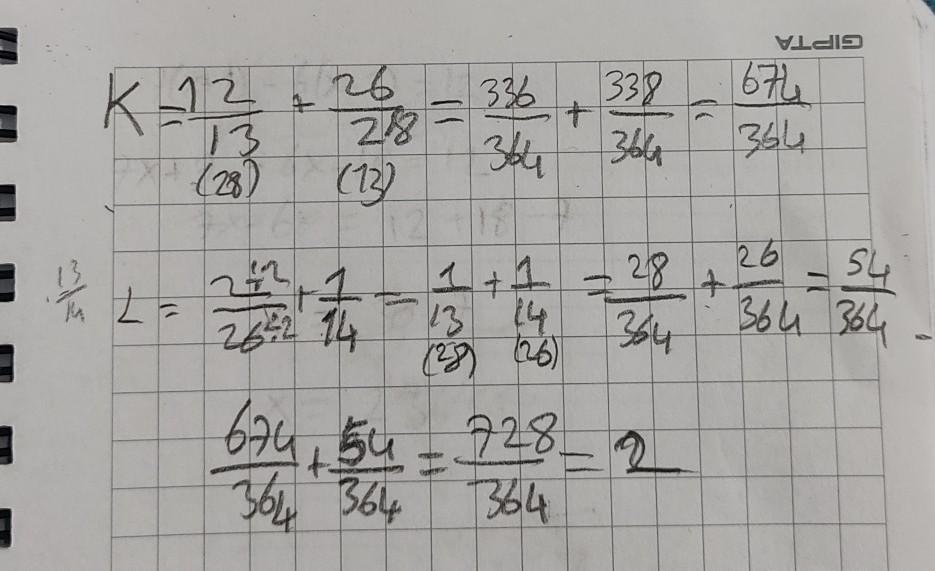 GIPTA
K = 12/13 + 26/28 = 336/364 + 338/364 = 674/364
(28) (13)
13/14 L = 2÷2/26÷2 + 1/14 = 1/13 + 1/14 = 28/364 + 26/364 = 54/364
(28) (26)
674/364 + 54/364 = 728/364 = 2